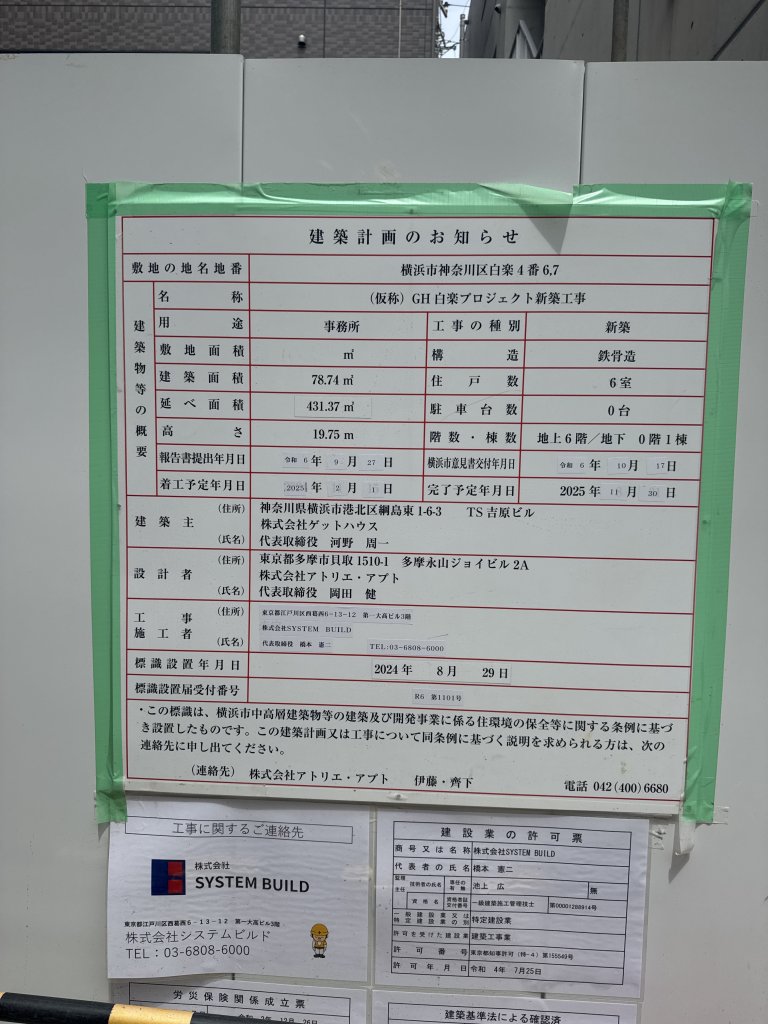 建築計画のお知らせ
敷地の地名地番 横浜市神奈川区白楽4番6,7
建築物等の概要
名称 （仮称）GH白楽プロジェクト新築工事
用途 事務所 工事の種別 新築
敷地面積 ㎡ 構造 鉄骨造
建築面積 78.74㎡ 住戸数 6室
延べ面積 431.37㎡ 駐車台数 0台
高さ 19.75m 階数・棟数 地上6階／地下 0階1棟
報告書提出年月日 令和6年9月27日 横浜市意見書交付年月日 令和6年10月17日
着工予定年月日 2025年2月1日 完了予定年月日 2025年11月30日
建築主 （住所） 神奈川県横浜市港北区綱島東1-6-3 TS吉原ビル
株式会社ゲットハウス
（氏名） 代表取締役 河野 周一
設計者 （住所） 東京都多摩市貝取1510-1 多摩永山ジョイビル2A
株式会社アトリエ・アプト
（氏名） 代表取締役 岡田 健
工事施工者 （住所） 東京都江戸川区西葛西6-13-12 第一大高ビル3階
株式会社SYSTEM BUILD
（氏名） 代表取締役 橋本 憲二 TEL:03-6808-6000
標識設置年月日 2024年 8月 29日
標識設置届受付番号 R6 第1101号
・この標識は、横浜市中高層建築物等の建築及び開発事業に係る住環境の保全等に関する条例に基づ
き設置したものです。この建築計画又は工事について同条例に基づく説明を求められる方は、次の
連絡先に申し出てください。
（連絡先） 株式会社アトリエ・アプト 伊藤・齊下 電話 042(400)6680
工事に関するご連絡先
株式会社
SYSTEM BUILD
東京都江戸川区西葛西6-13-12 第一大高ビル3階
株式会社システムビルド
TEL：03-6808-6000
建設業の許可票
商号又は名称 株式会社SYSTEM BUILD
代表者の氏名 橋本 憲二
監理主任 技術者の氏名 専任の有無 池上 広 無
資格名 資格者証交付番号 一級建築施工管理技士 第00001288914号
一般建設業又は特定建設業の別 特定建設業
許可を受けた建設業 建築工事業
許可番号 東京都知事許可（特-4）第155549号
許可年月日 令和 4年 7月25日
労災保険関係成立票
建築基準法による確認済